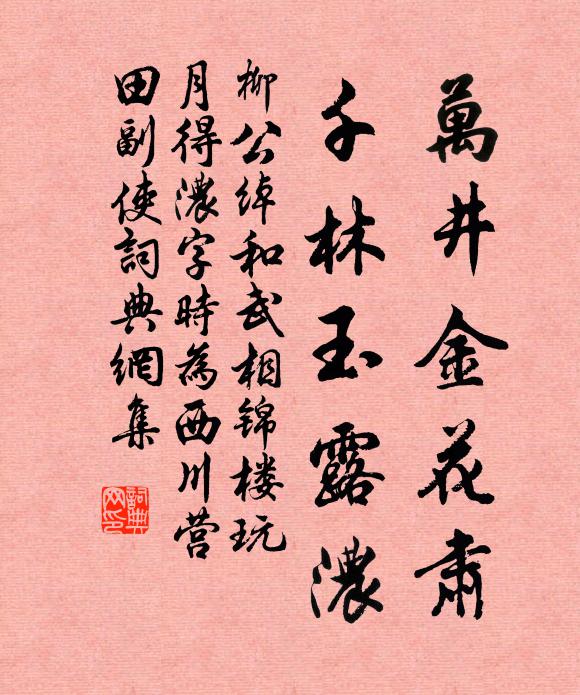 萬井金花肅
千林玉露濃
柳公绰和武相锦楼玩
月得濃字時為西川营
田副使詞典網集
詞典网印